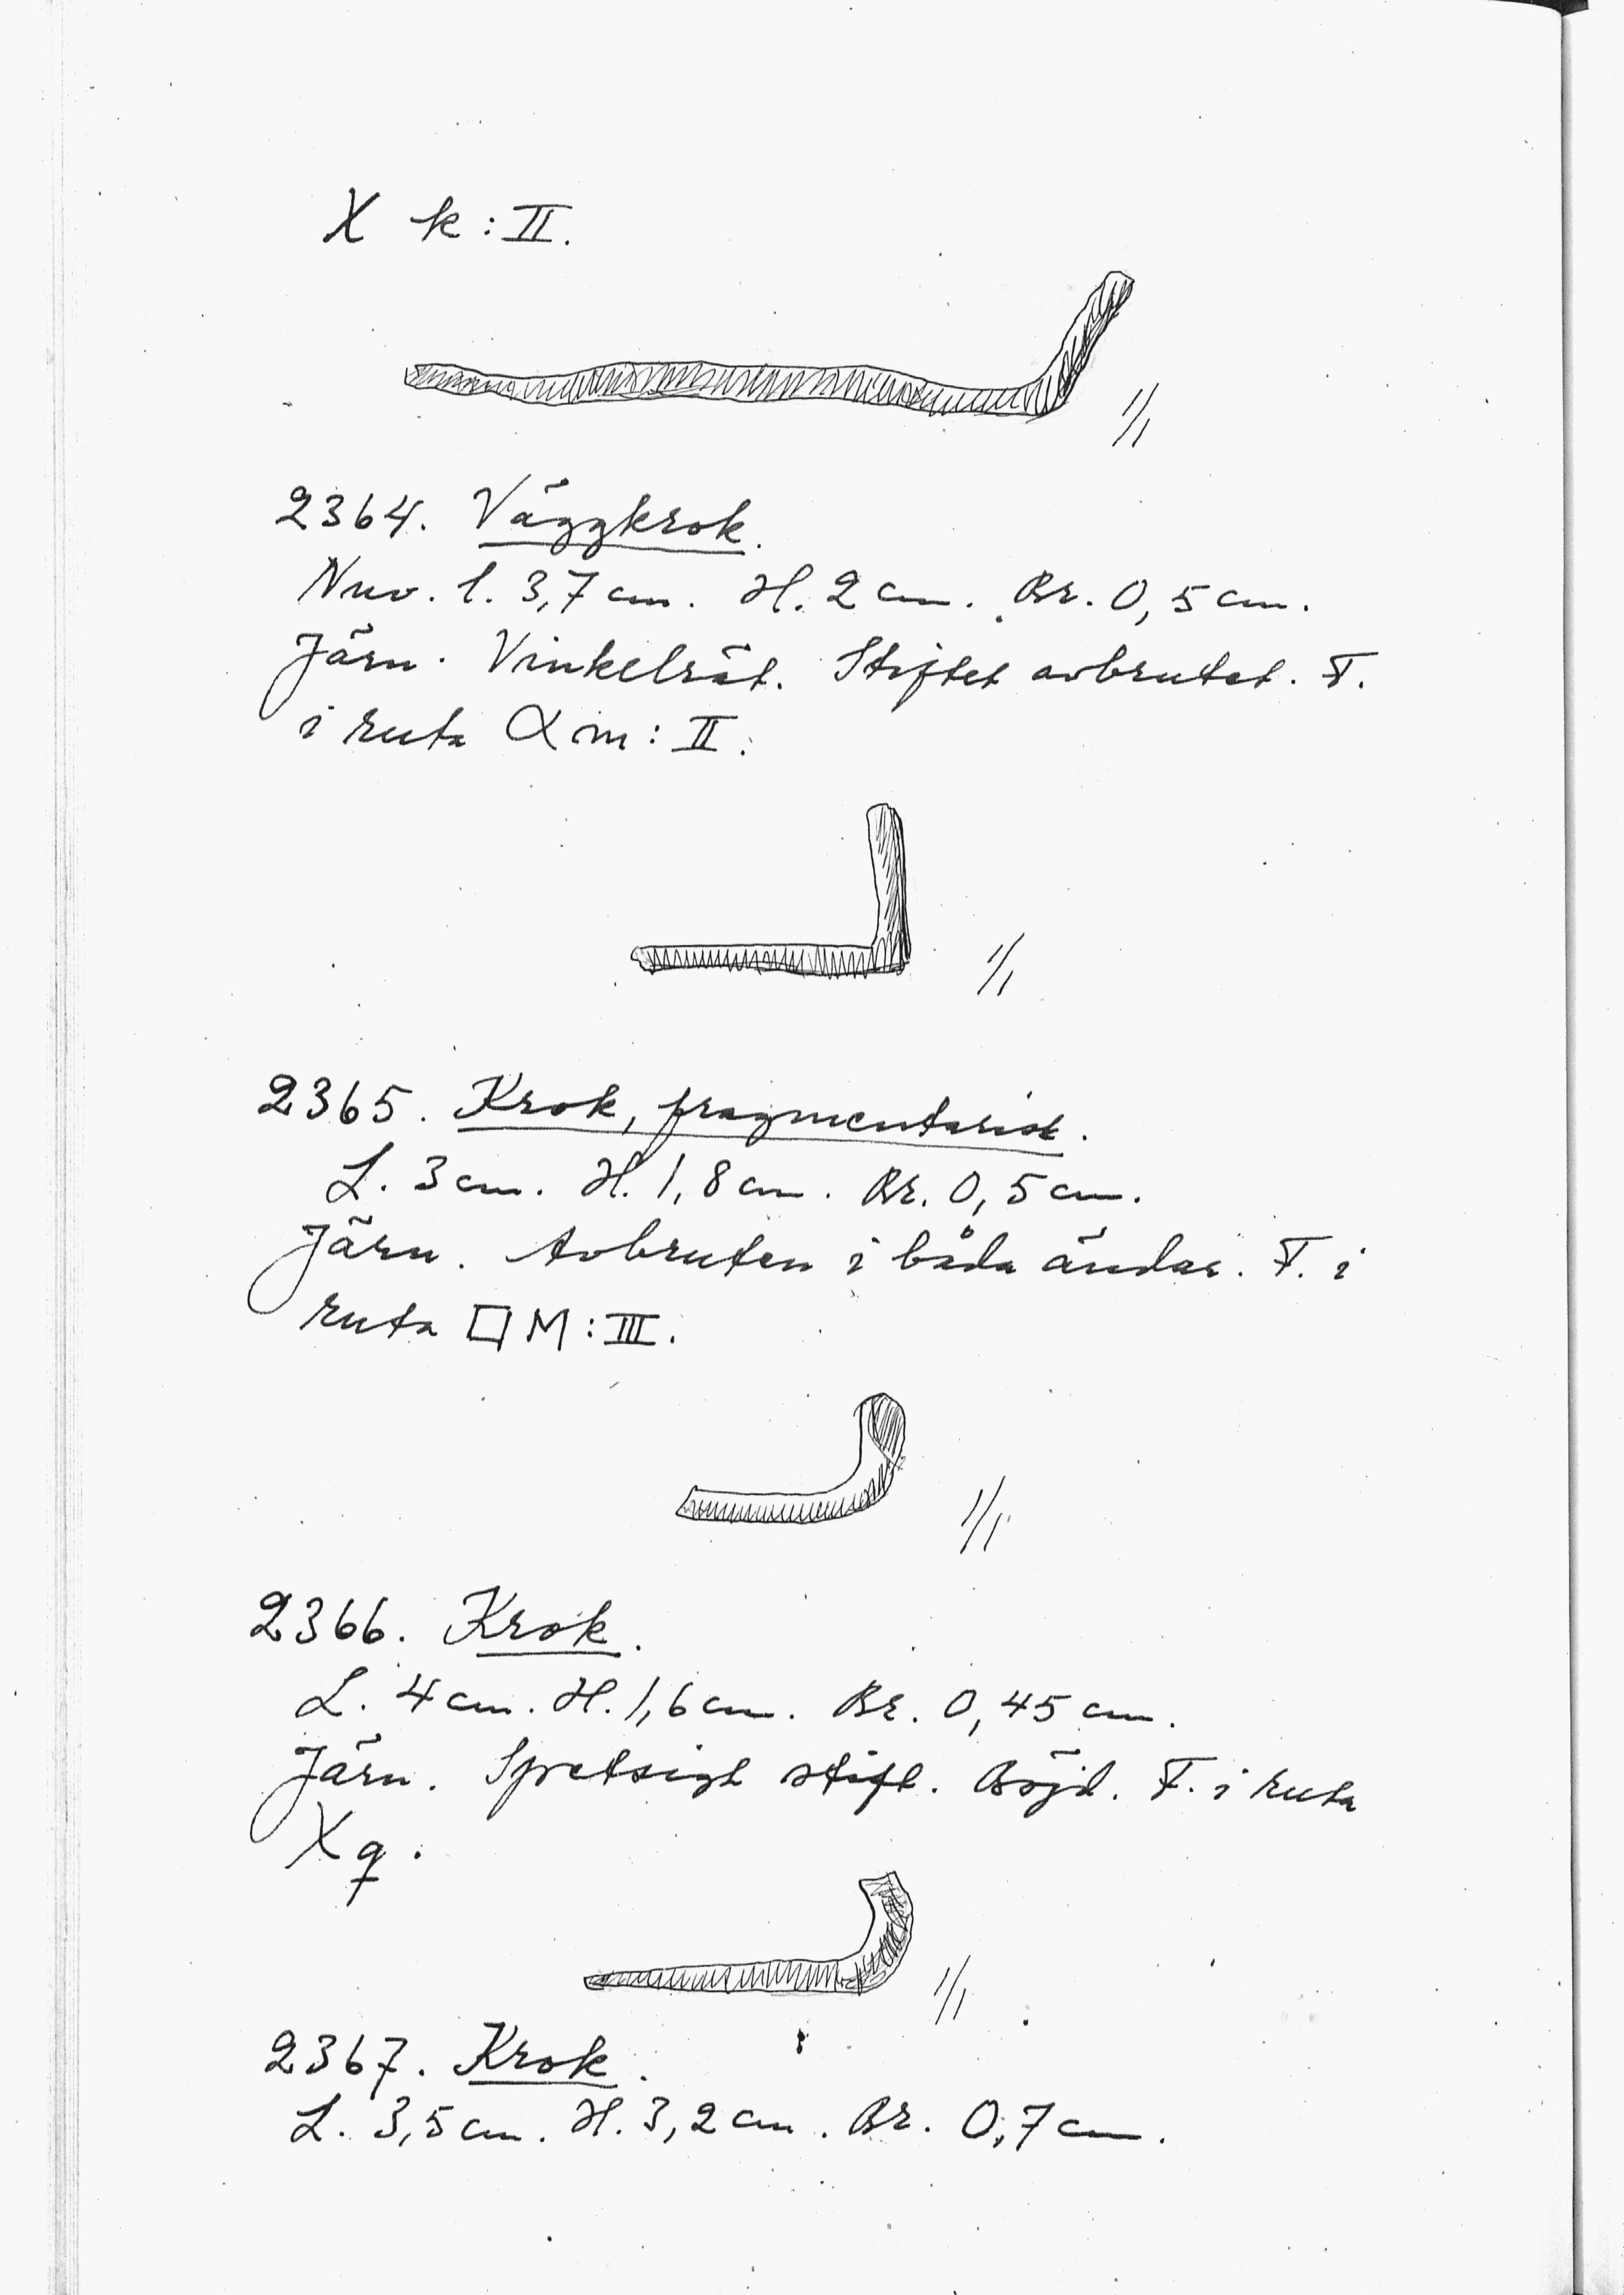 X k : II.
1/1
2364. Väggkrok.
Nuv. l. 3,7 cm. H. 2 cm. Br. 0,5 cm.
Järn. Vinkelrät. Stiftet avbrutet. F.
i ruta α m : II.
1/1
2365. Krok, fragmentarisk.
L. 3 cm. H. 1,8 cm. Br. 0,5 cm.
Järn. Avbruten i båda ändar. F. i
ruta □ M : III.
1/1
2366. Krok.
L. 4 cm. H. 1,6 cm. Br. 0,45 cm.
Järn. Spetsigt stift. Böjd. F. i ruta
X q.
1/1
2367. Krok.
L. 3,5 cm. H. 3,2 cm. Br. 0,7 cm.